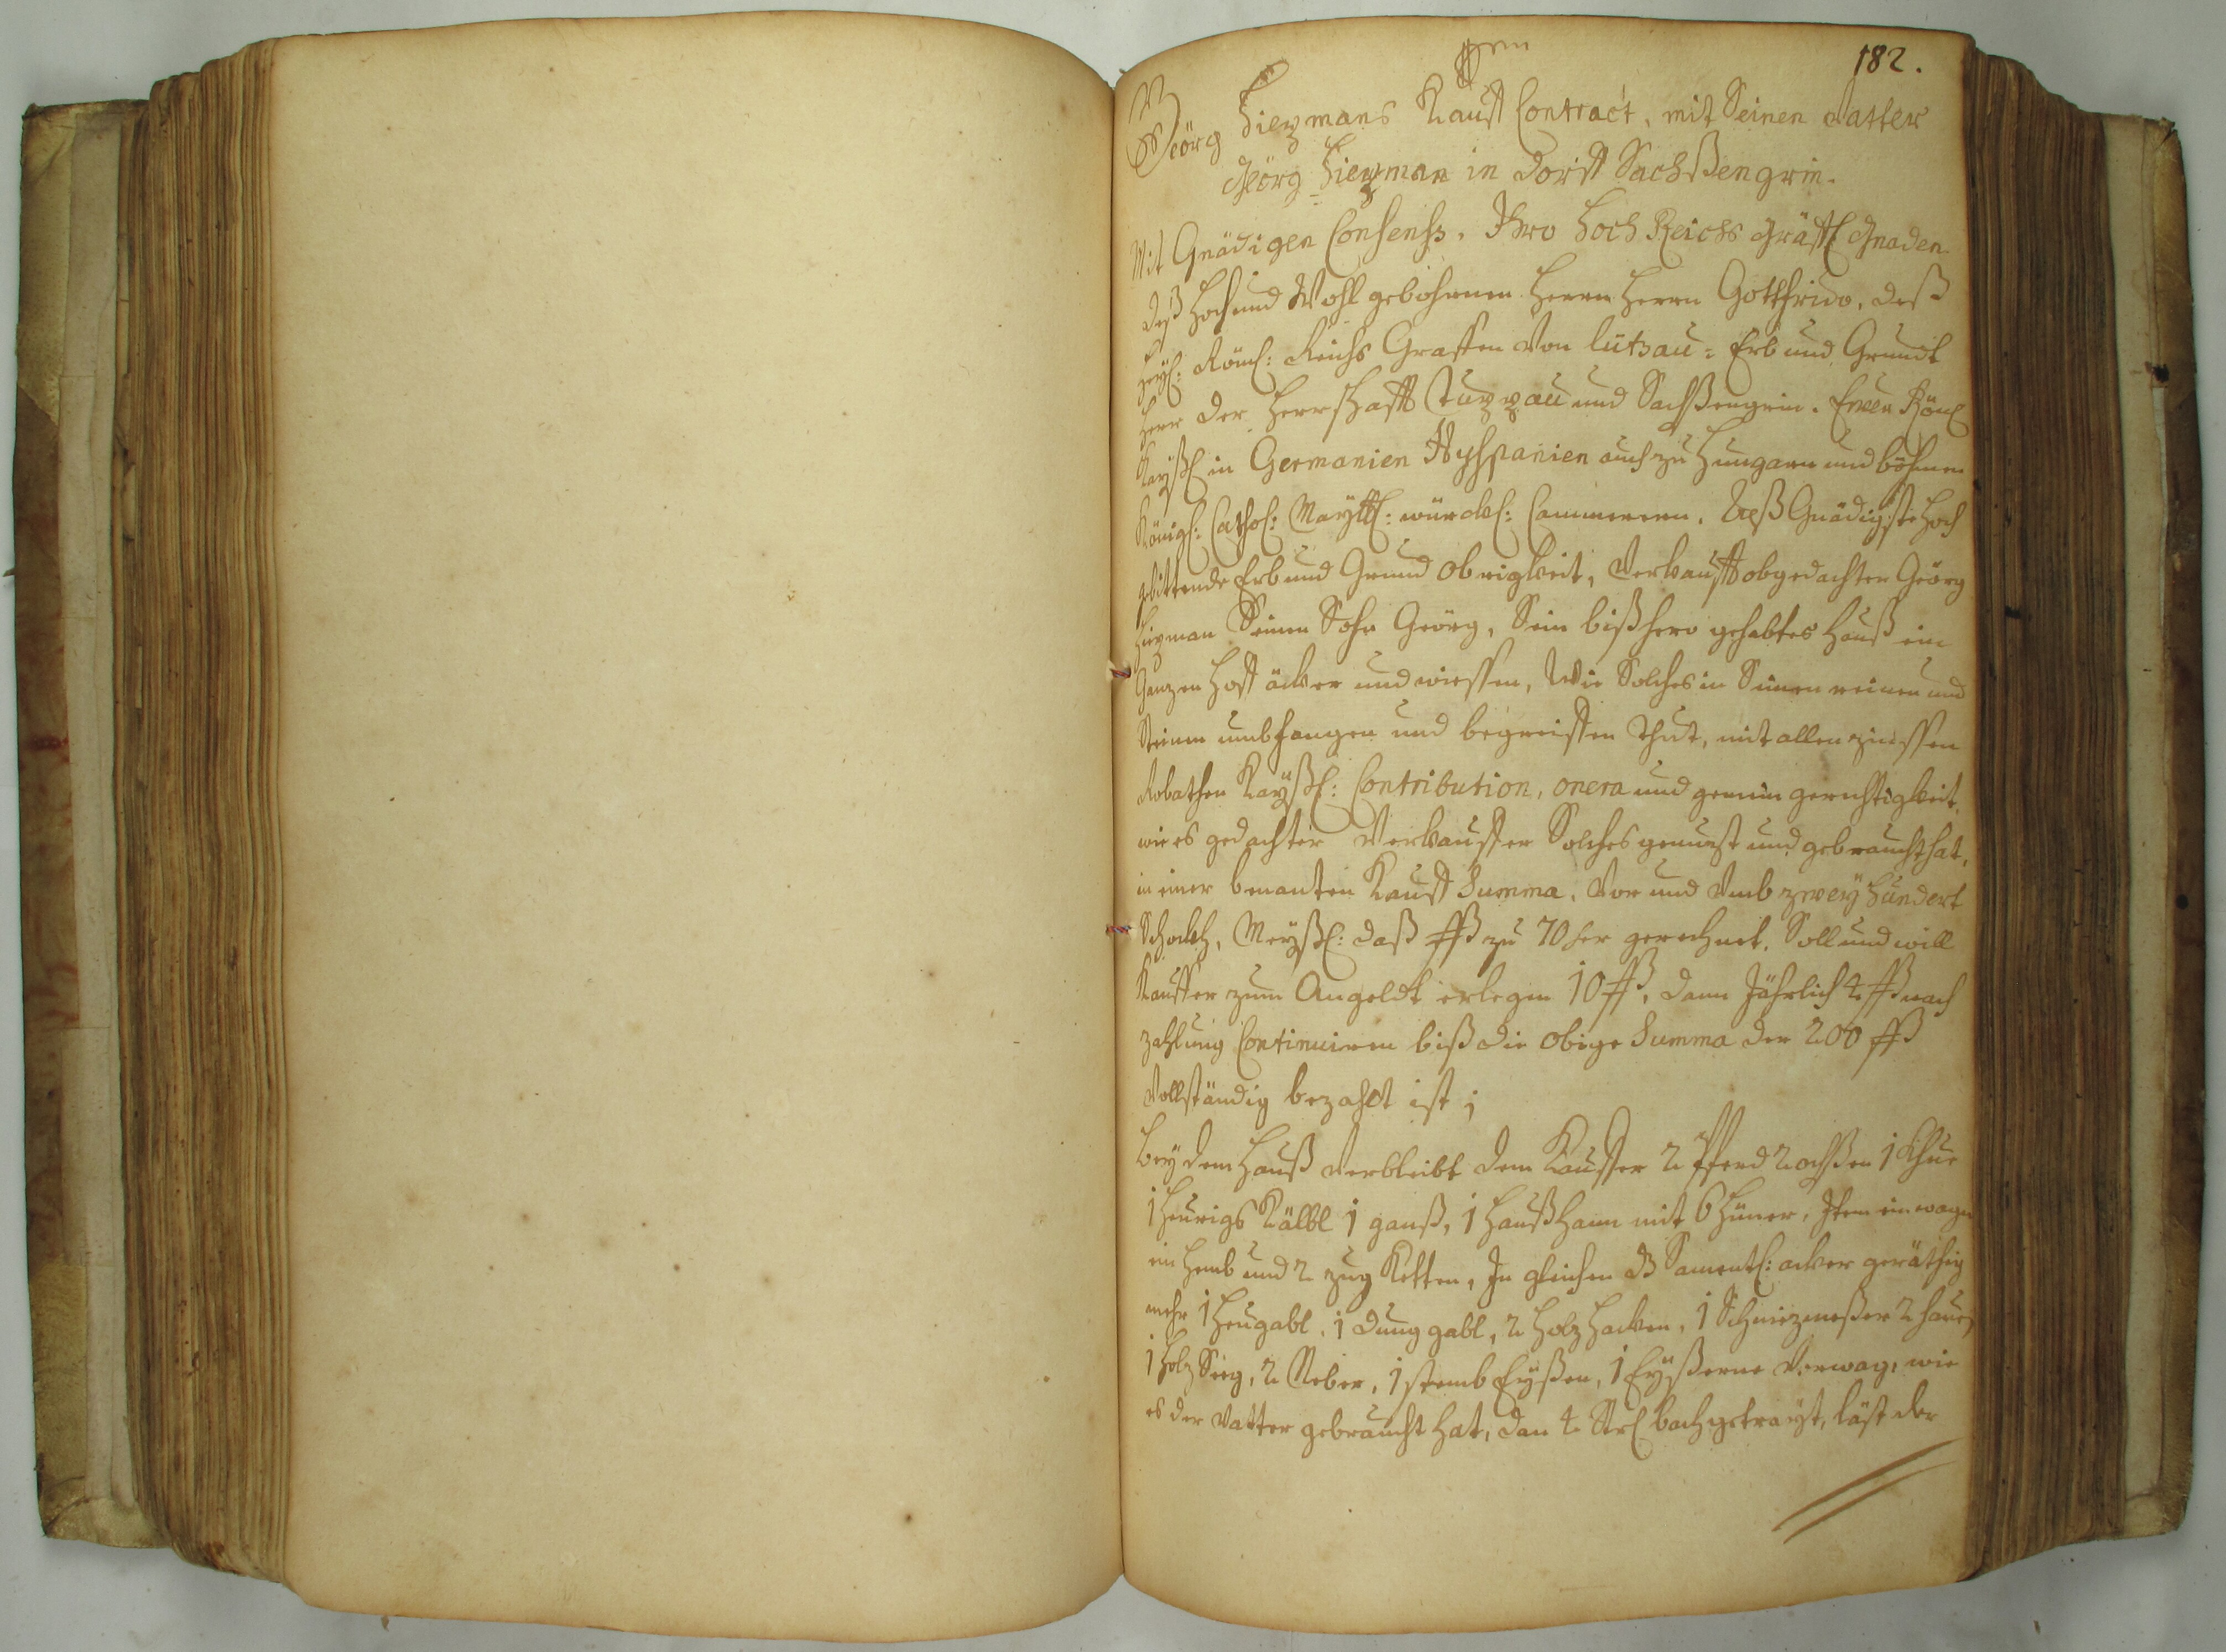 182.
Geörg Hiezmans Kauff Contract, mit Seinen Vatter
Geörg Hiezman in Dorff Sachßengrin.
Mit Gnädigen Consenß. Ihro Hoch Reichs Gräffl Gnaden
deß Hoch und Wohl gebohrnen Herrn Herrn Gottfrido, deß
Heyl: Röml: Reichs Graffen Von Lützau. Erb und Grundt
Herr der Herrschafft Tuppau und Sachßengrin. Röml
Kayßl in Germanien Hyspanien auch zu Hungarn und böhmen
Königl: Cathol: Mayttl: würckl: Cammerern. Unß Gnädigste Hoch
gebittende Erb und Grund Obrigkeit, Verkaufft obgedachter Geörg
Hiezman Seinen Sohn Geörg, Sein bißhero gehabtes Hauß ein
Ganzen Hoff äcker und wießen, Wie Solches in Seinen reinen und
Steinen umbfangen und begreiffen thut, mit allen zinßen
Robathen Kayßl: Contribution, onera und gemein gerechtigkeit.
wie es gedachter Verkauffer Solches genuzt und gebraucht hat,
in einer benanten Kauff Summa. Vor und Vmb zweÿ Hundert
Schockh, Meyßl: daß ßß zu 70 ser gerechnet. Soll und will
Kauffer zum Angeldt erlegen 10 ßß, dann Jährlich 4 ßß nach
zahlung Continuiren biß die Obige Summa der 200 ßß
Vollständig bezahlt ist ;
Beÿ dem Hauß Verbleibt dem Kauffer 2 Pferd 2 ochßen 1 Khue
1 Heurigs Kälbl 1 ganß, 1 Haußhann mit 6 Hüner, Item ein wagen
ein Hemb und 2 zug Ketten, In gleichen Sament: acker geräthig
mehr 1 Heugabl, 1 Dung gabl, 2 Holz Hacken, 1 Schneizmeßer 2 hauen
1 Holz Seeg, 2 Neber, 1 stemb Eyßen, 1 Eyßerne Vorwag, wie
es der Vatter gebraucht hat, dan 4 Strl bachgetrayt, läst der